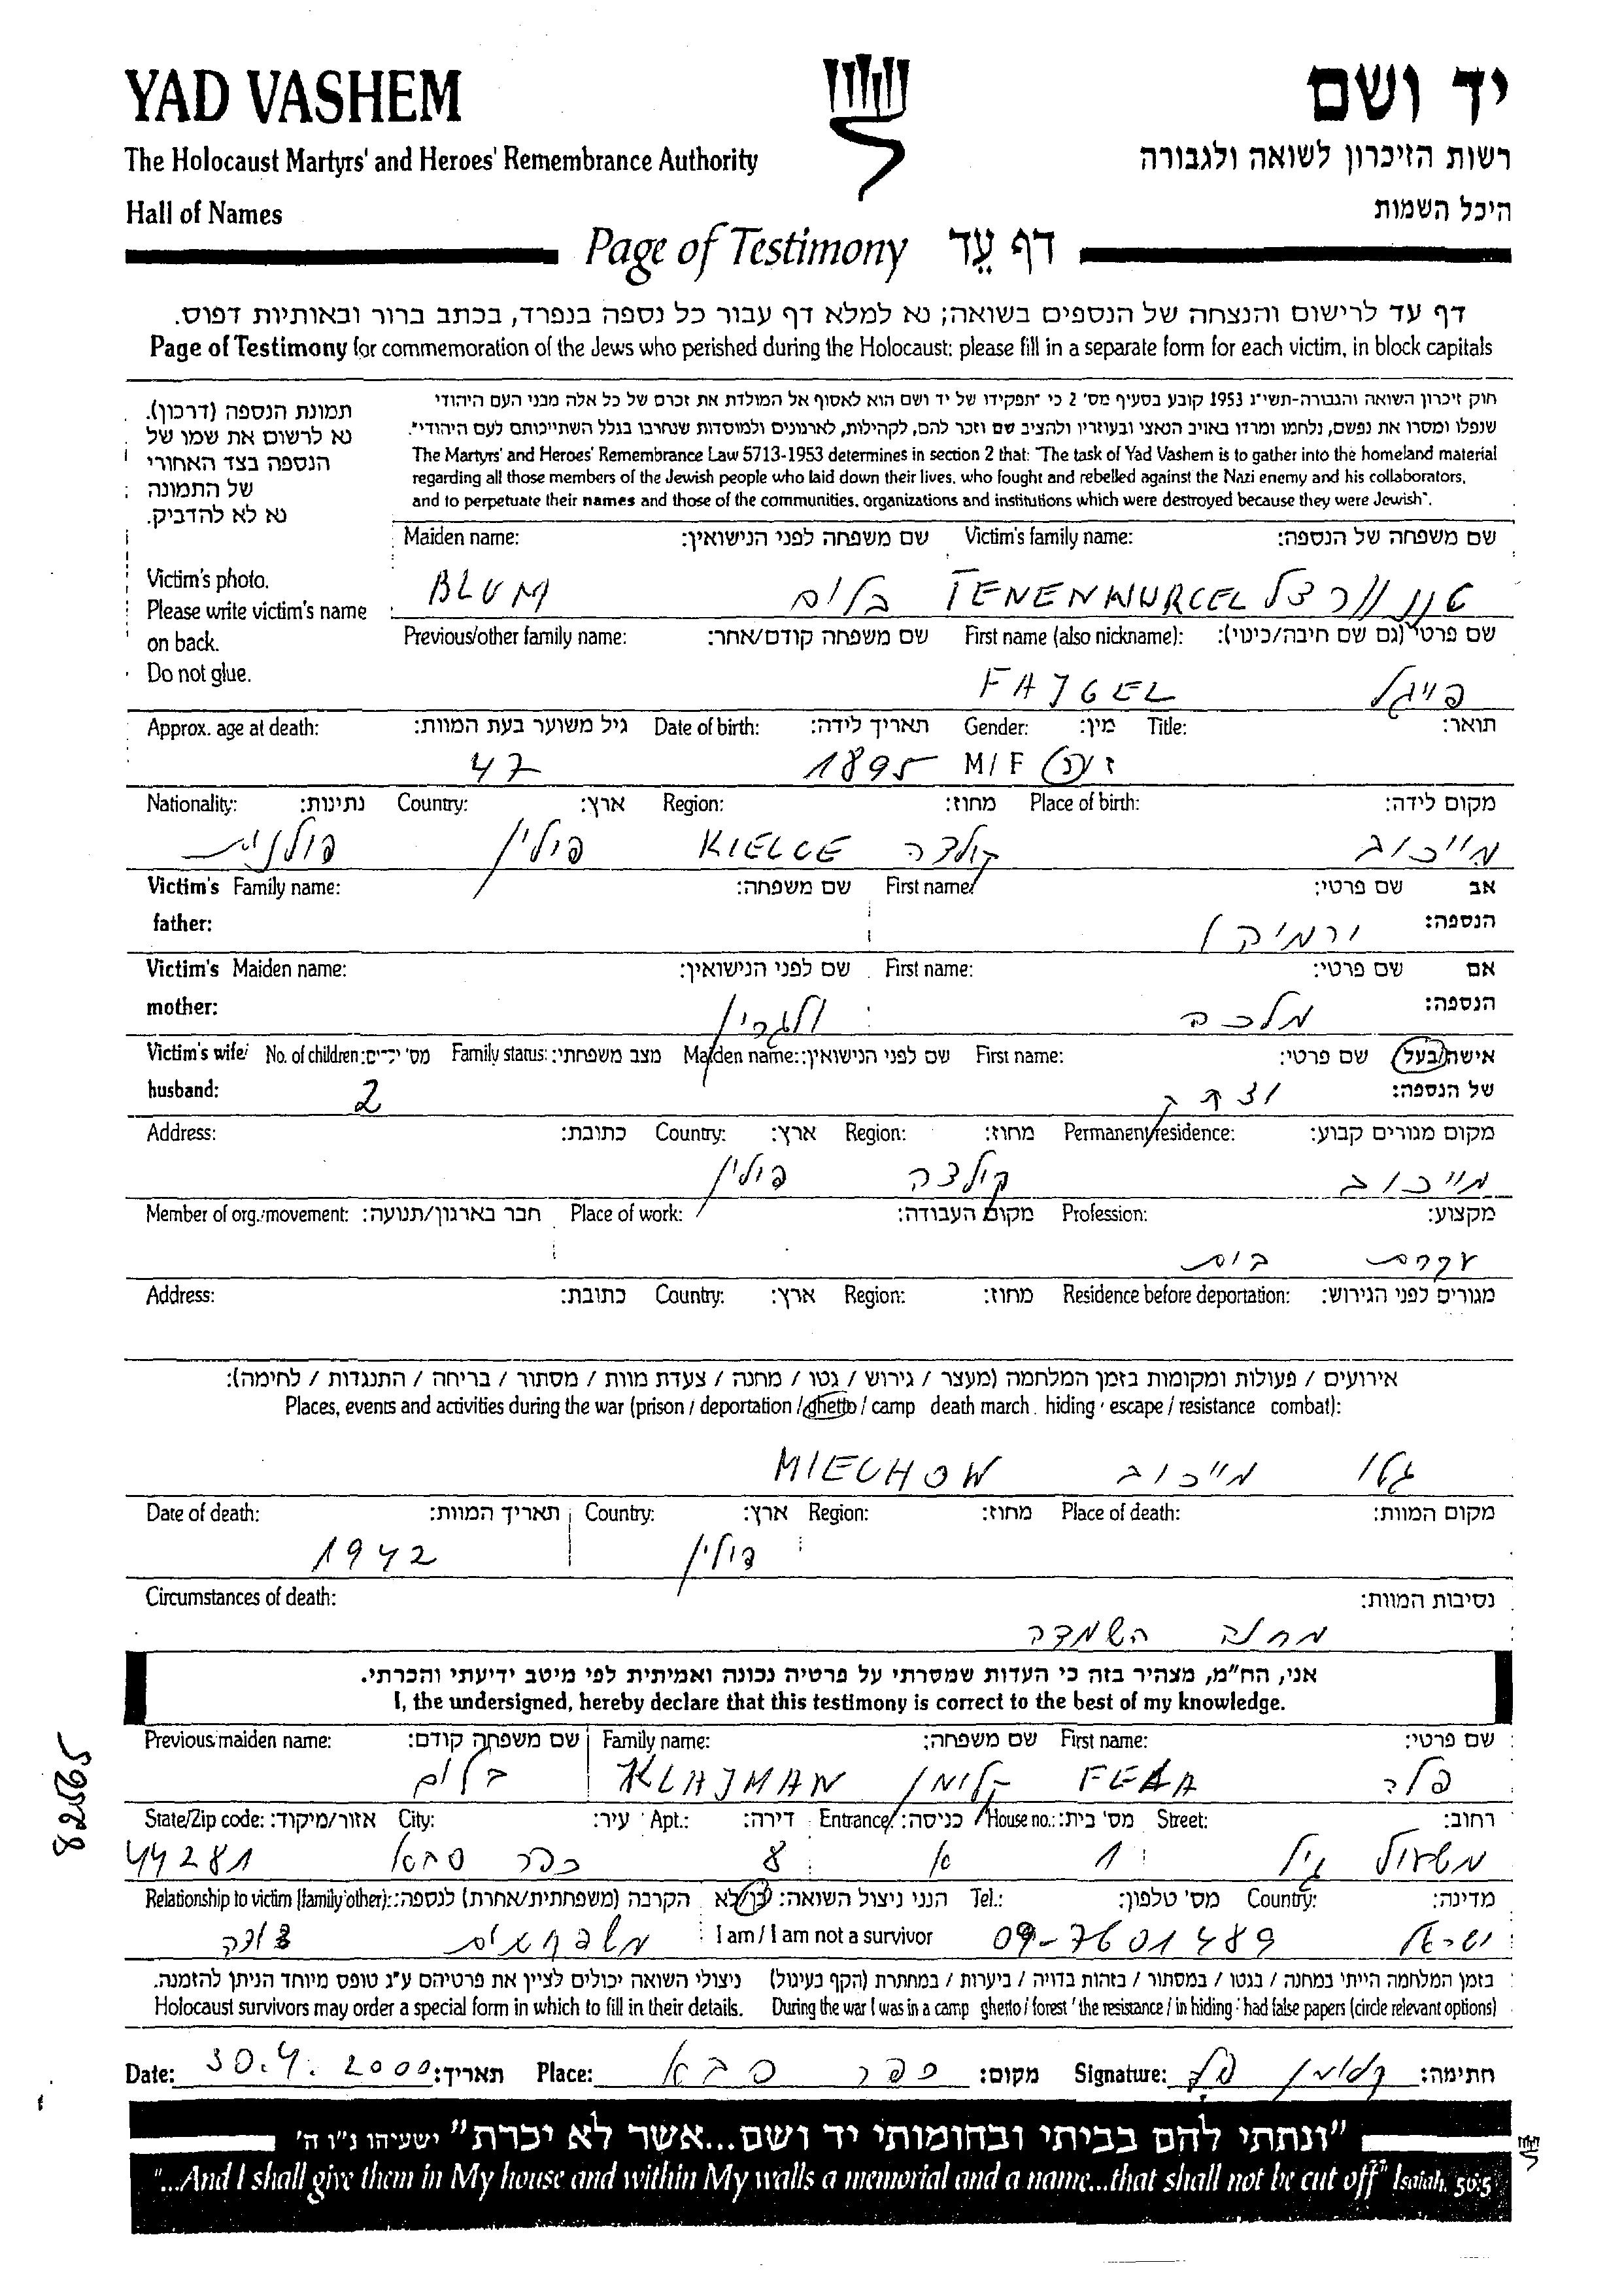 YAD VASHEM יד ושם
The Holocaust Martyrs' and Heroes' Remembrance Authority רשות הזיכרון לשואה ולגבורה
Hall of Names היכל השמות
Page of Testimony דף עֵד
דף עד לרישום והנצחה של הנספים בשואה; נא למלא דף עבור כל נספה בנפרד, בכתב ברור ובאותיות דפוס.
Page of Testimony for commemoration of the Jews who perished during the Holocaust: please fill in a separate form for each victim, in block capitals
תמונת הנספה (דרכון).
נא לרשום את שמו של
הנספה בצד האחורי
של התמונה
נא לא להדביק.
Victim's photo.
Please write victim's name
on back.
Do not glue.
חוק זיכרון השואה והגבורה-תשי"ג 1953 קובע בסעיף מס' 2 כי "תפקידו של יד ושם הוא לאסוף אל המולדת את זכרם של כל אלה מבני העם היהודי
שנפלו ומסרו את נפשם, נלחמו ומרדו באויב הנאצי ובעוזריו ולהציב שם וזכר להם, לקהילות, לארגונים ולמוסדות שנחרבו בגלל השתייכותם לעם היהודי".
The Martyrs' and Heroes' Remembrance Law 5713-1953 determines in section 2 that: "The task of Yad Vashem is to gather into the homeland material
regarding all those members of the Jewish people who laid down their lives, who fought and rebelled against the Nazi enemy and his collaborators,
and to perpetuate their names and those of the communities, organizations and institutions which were destroyed because they were Jewish".
Maiden name: שם משפחה לפני הנישואין: Victim's family name: שם משפחה של הנספה:
BLUM בלום TENENWURCEL
Previous/other family name: שם משפחה קודם/אחר: First name (also nickname): שם פרטי (גם שם חיבה/כינוי):
FAJGEL פייגל
Approx. age at death: גיל משוער בעת המוות: Date of birth: תאריך לידה: Gender: מין: Title: תואר:
47 1895 M/F ז/נ
Nationality: נתינות: Country: ארץ: Region: מחוז: Place of birth: מקום לידה:
פולנית פולין KIELCE קילצה מייכוב
Victim's Family name: שם משפחה: First name: שם פרטי: אב
father: הנספה:
Victim's Maiden name: שם לפני הנישואין: First name: שם פרטי: אם
mother: הנספה:
מלכה
Victim's wife/ No. of children: מס' ילדים: Family status: מצב משפחתי: Maiden name: שם לפני הנישואין: First name: שם פרטי: אישה/בעל
husband: של הנספה:
2 יצחק
Address: כתובת: Country: ארץ: Region: מחוז: Permanent residence: מקום מגורים קבוע:
פולין קילצה מייכוב
Member of org./movement: חבר בארגון/תנועה: Place of work: מקום העבודה: Profession: מקצוע:
עקרת בית
Address: כתובת: Country: ארץ: Region: מחוז: Residence before deportation: מגורים לפני הגירוש:
אירועים / פעולות ומקומות בזמן המלחמה (מעצר / גירוש / גטו / מחנה / צעדת מוות / מסתור / בריחה / התנגדות / לחימה):
Places, events and activities during the war (prison / deportation / ghetto / camp death march. hiding / escape / resistance combat):
MIECHOW גטו מייכוב
Date of death: תאריך המוות: Country: ארץ: Region: מחוז: Place of death: מקום המוות:
1942 פולין
Circumstances of death: נסיבות המוות:
מחנה השמדה
אני, הח"מ, מצהיר בזה כי העדות שמסרתי על פרטיה נכונה ואמיתית לפי מיטב ידיעתי והכרתי.
I, the undersigned, hereby declare that this testimony is correct to the best of my knowledge.
Previous/maiden name: שם משפחה קודם: Family name: שם משפחה: First name: שם פרטי:
בלום KLAJMAN קלימן FELA פלה
State/Zip code: אזור/מיקוד: City: עיר: Apt.: דירה: Entrance: כניסה: House no.: מס' בית: Street: רחוב:
44281 כפר סבא 8 א 1 משעול גיל
Relationship to victim (family/other): הקרבה (משפחתית/אחרת) לנספה: הנני ניצול השואה: כן/לא Tel.: מס' טלפון: Country: מדינה:
משפחתית דודה I am / I am not a survivor 09-7601489 ישראל
בזמן המלחמה הייתי במחנה / בגטו / במסתור / בזהות בדויה / ביערות / במחתרת (הקף בעיגול) ניצולי השואה יכולים לציין את פרטיהם ע"ג טופס מיוחד הניתן להזמנה.
Holocaust survivors may order a special form in which to fill in their details. During the war I was in a camp ghetto / forest / the resistance / in hiding / had false papers (circle relevant options)
Date: 30.4.2000 תאריך: Place: כפר סבא מקום: Signature: קלימן פלה חתימה:
"ונתתי להם בביתי ובחומותי יד ושם...אשר לא יכרת" ישעיהו נ"ו ה'
"...And I shall give them in My house and within My walls a memorial and a name...that shall not be cut off" Isaiah, 56:5
82565